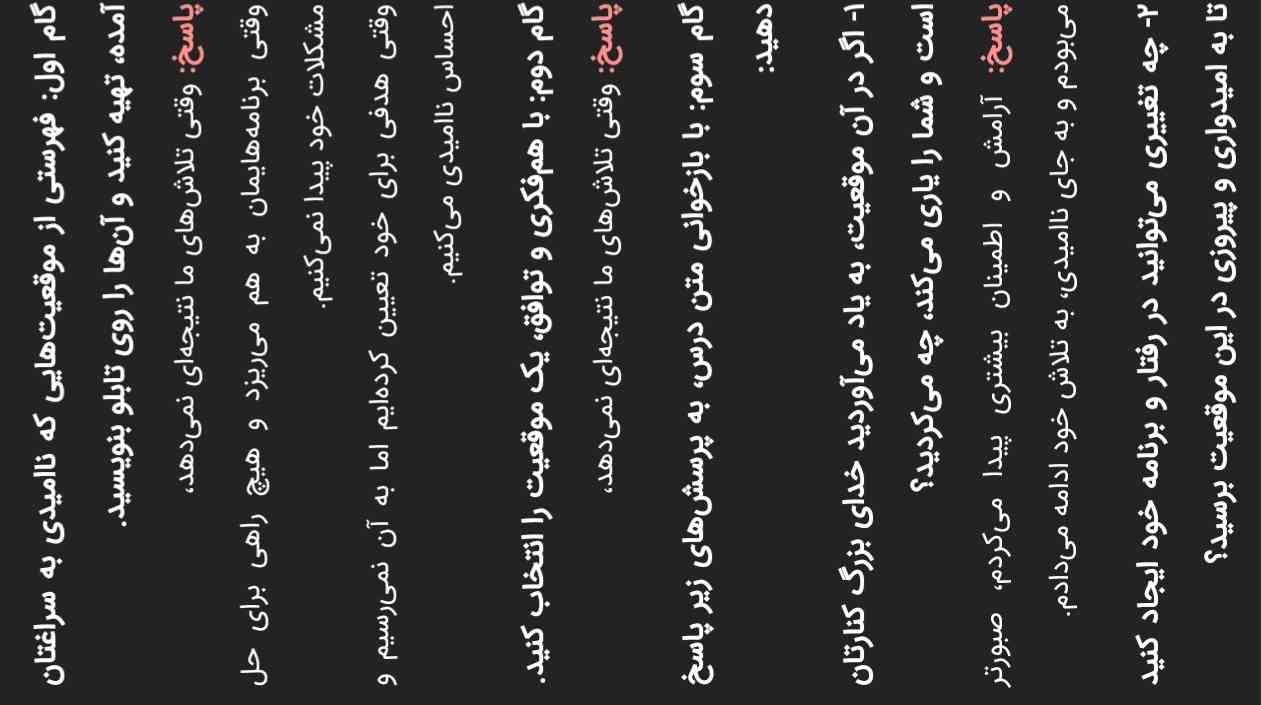 گام اول: فهرستی از موقعیت‌هایی که ناامیدی به سراغتان
آمده، تهیه کنید و آن‌ها را روی تابلو بنویسید.
پاسخ: وقتی تلاش‌های ما نتیجه‌ای نمی‌دهد،
وقتی برنامه‌هایمان به هم می‌ریزد و هیچ راهی برای حل
مشکلات خود پیدا نمی‌کنیم.
وقتی هدفی برای خود تعیین کرده‌ایم اما به آن نمی‌رسیم و
احساس ناامیدی می‌کنیم.
گام دوم: با هم‌فکری و توافق، یک موقعیت را انتخاب کنید.
پاسخ: وقتی تلاش‌های ما نتیجه‌ای نمی‌دهد،
گام سوم: با بازخوانی متن درس، به پرسش‌های زیر پاسخ
دهید:
۱- اگر در آن موقعیت، به یاد می‌آوردید خدای بزرگ کنارتان
است و شما را یاری می‌کند، چه می‌کردید؟
پاسخ: آرامش و اطمینان بیشتری پیدا می‌کردم، صبورتر
می‌بودم و به جای ناامیدی، به تلاش خود ادامه می‌دادم.
۲- چه تغییری می‌توانید در رفتار و برنامه خود ایجاد کنید
تا به امیدواری و پیروزی در این موقعیت برسید؟